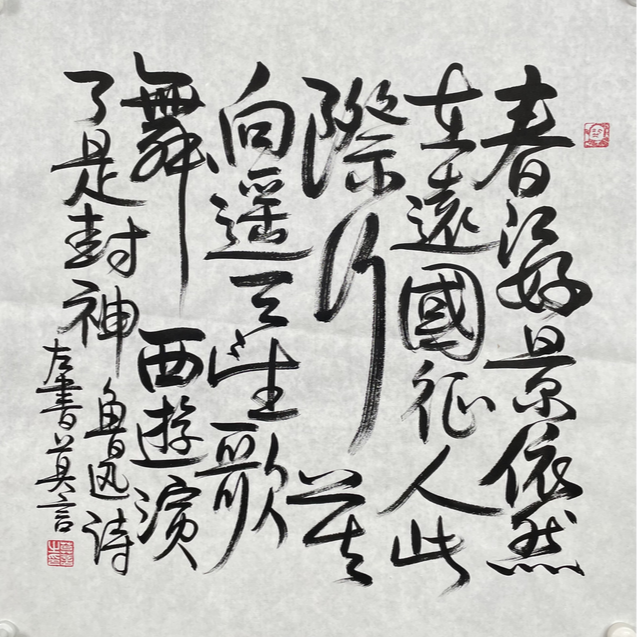 春江好景依然
在遠國征人此
際行莫
向遥天望歌
舞西遊演
了是封神
魯迅诗
左書莫言